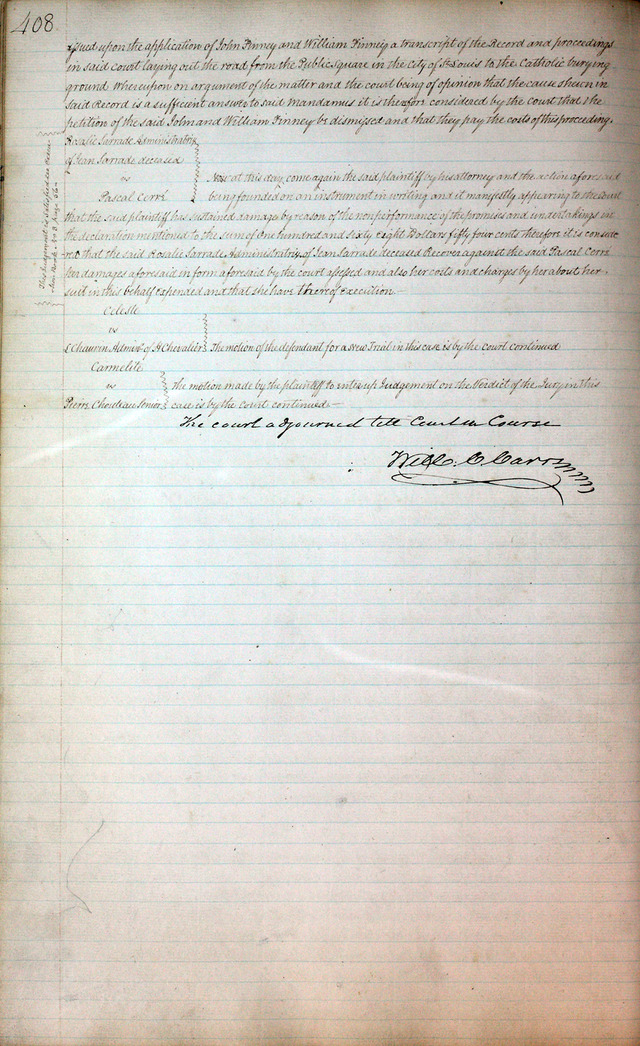 408
issued upon the application of John Finney and William Finney a transcript of the Record and proceedings
in said court laying out the road from the Public Square in the City of St Louis to the Catholic burying
ground whereupon on argument of the matter and the court being of opinion that the cause shewn in
said Record is a sufficient answer to said Mandamus it is therefore considered by the court that the
petition of the said John and William Finney be dismissed and that they pay the costs of this proceeding.
Rosalie Sarrade Administratrix
of Jean Sarrade deceased
vs
Pascal Cerré
Now at this day come again the said plaintiff by his attorney and the action aforesaid
being founded on an instrument in writing and it manifestly appearing to the Court
that the said plaintiff has sustained damage by reason of the nonperformance of the promises and undertakings in
the declaration mentioned to the sum of One hundred and sixty Eight Dollars fifty four cents therefore it is conside
red that the said Rosalie Sarrade Administratrix of Jean Sarrade deceased Recover against the said Pascal Cerre
her damages aforesaid in form aforesaid by the court assessed and also her costs and charges by her about her
suit in this behalf expended and that she have thereof execution —
This Judgement is satisfied see
page 66
Celeste
vs
Chauvin Admr of H Chevalier
The motion of the defendant for a New Trial in this case is by the court continued
Carmelite
vs
Pierre Chouteau Senior
the motion made by the plaintiff to enter up Judgement on the Verdict of the Jury in this
case is by the court continued —
The court adjourned till Court in Course
Will. C Carr